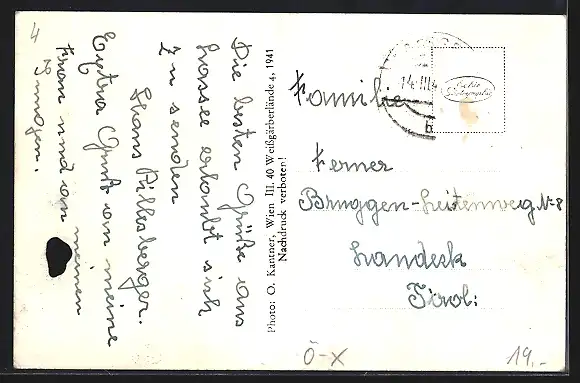 4
Die besten Grüße aus
Lassee erlaubt sich
zu senden
Hans Pillesberger.
Extra Gruß an meine
Frau und an meinen
Jungen.
Photo: O. Kantner, Wien III. 40 Weißgärberlände 4, 1941
Nachdruck verboten!
14.III.4
b
Echte
Photographie
Familie
Ferner
Bruggen-Leitenweg No 8
Landeck
Tirol:
Ö-X
19,-